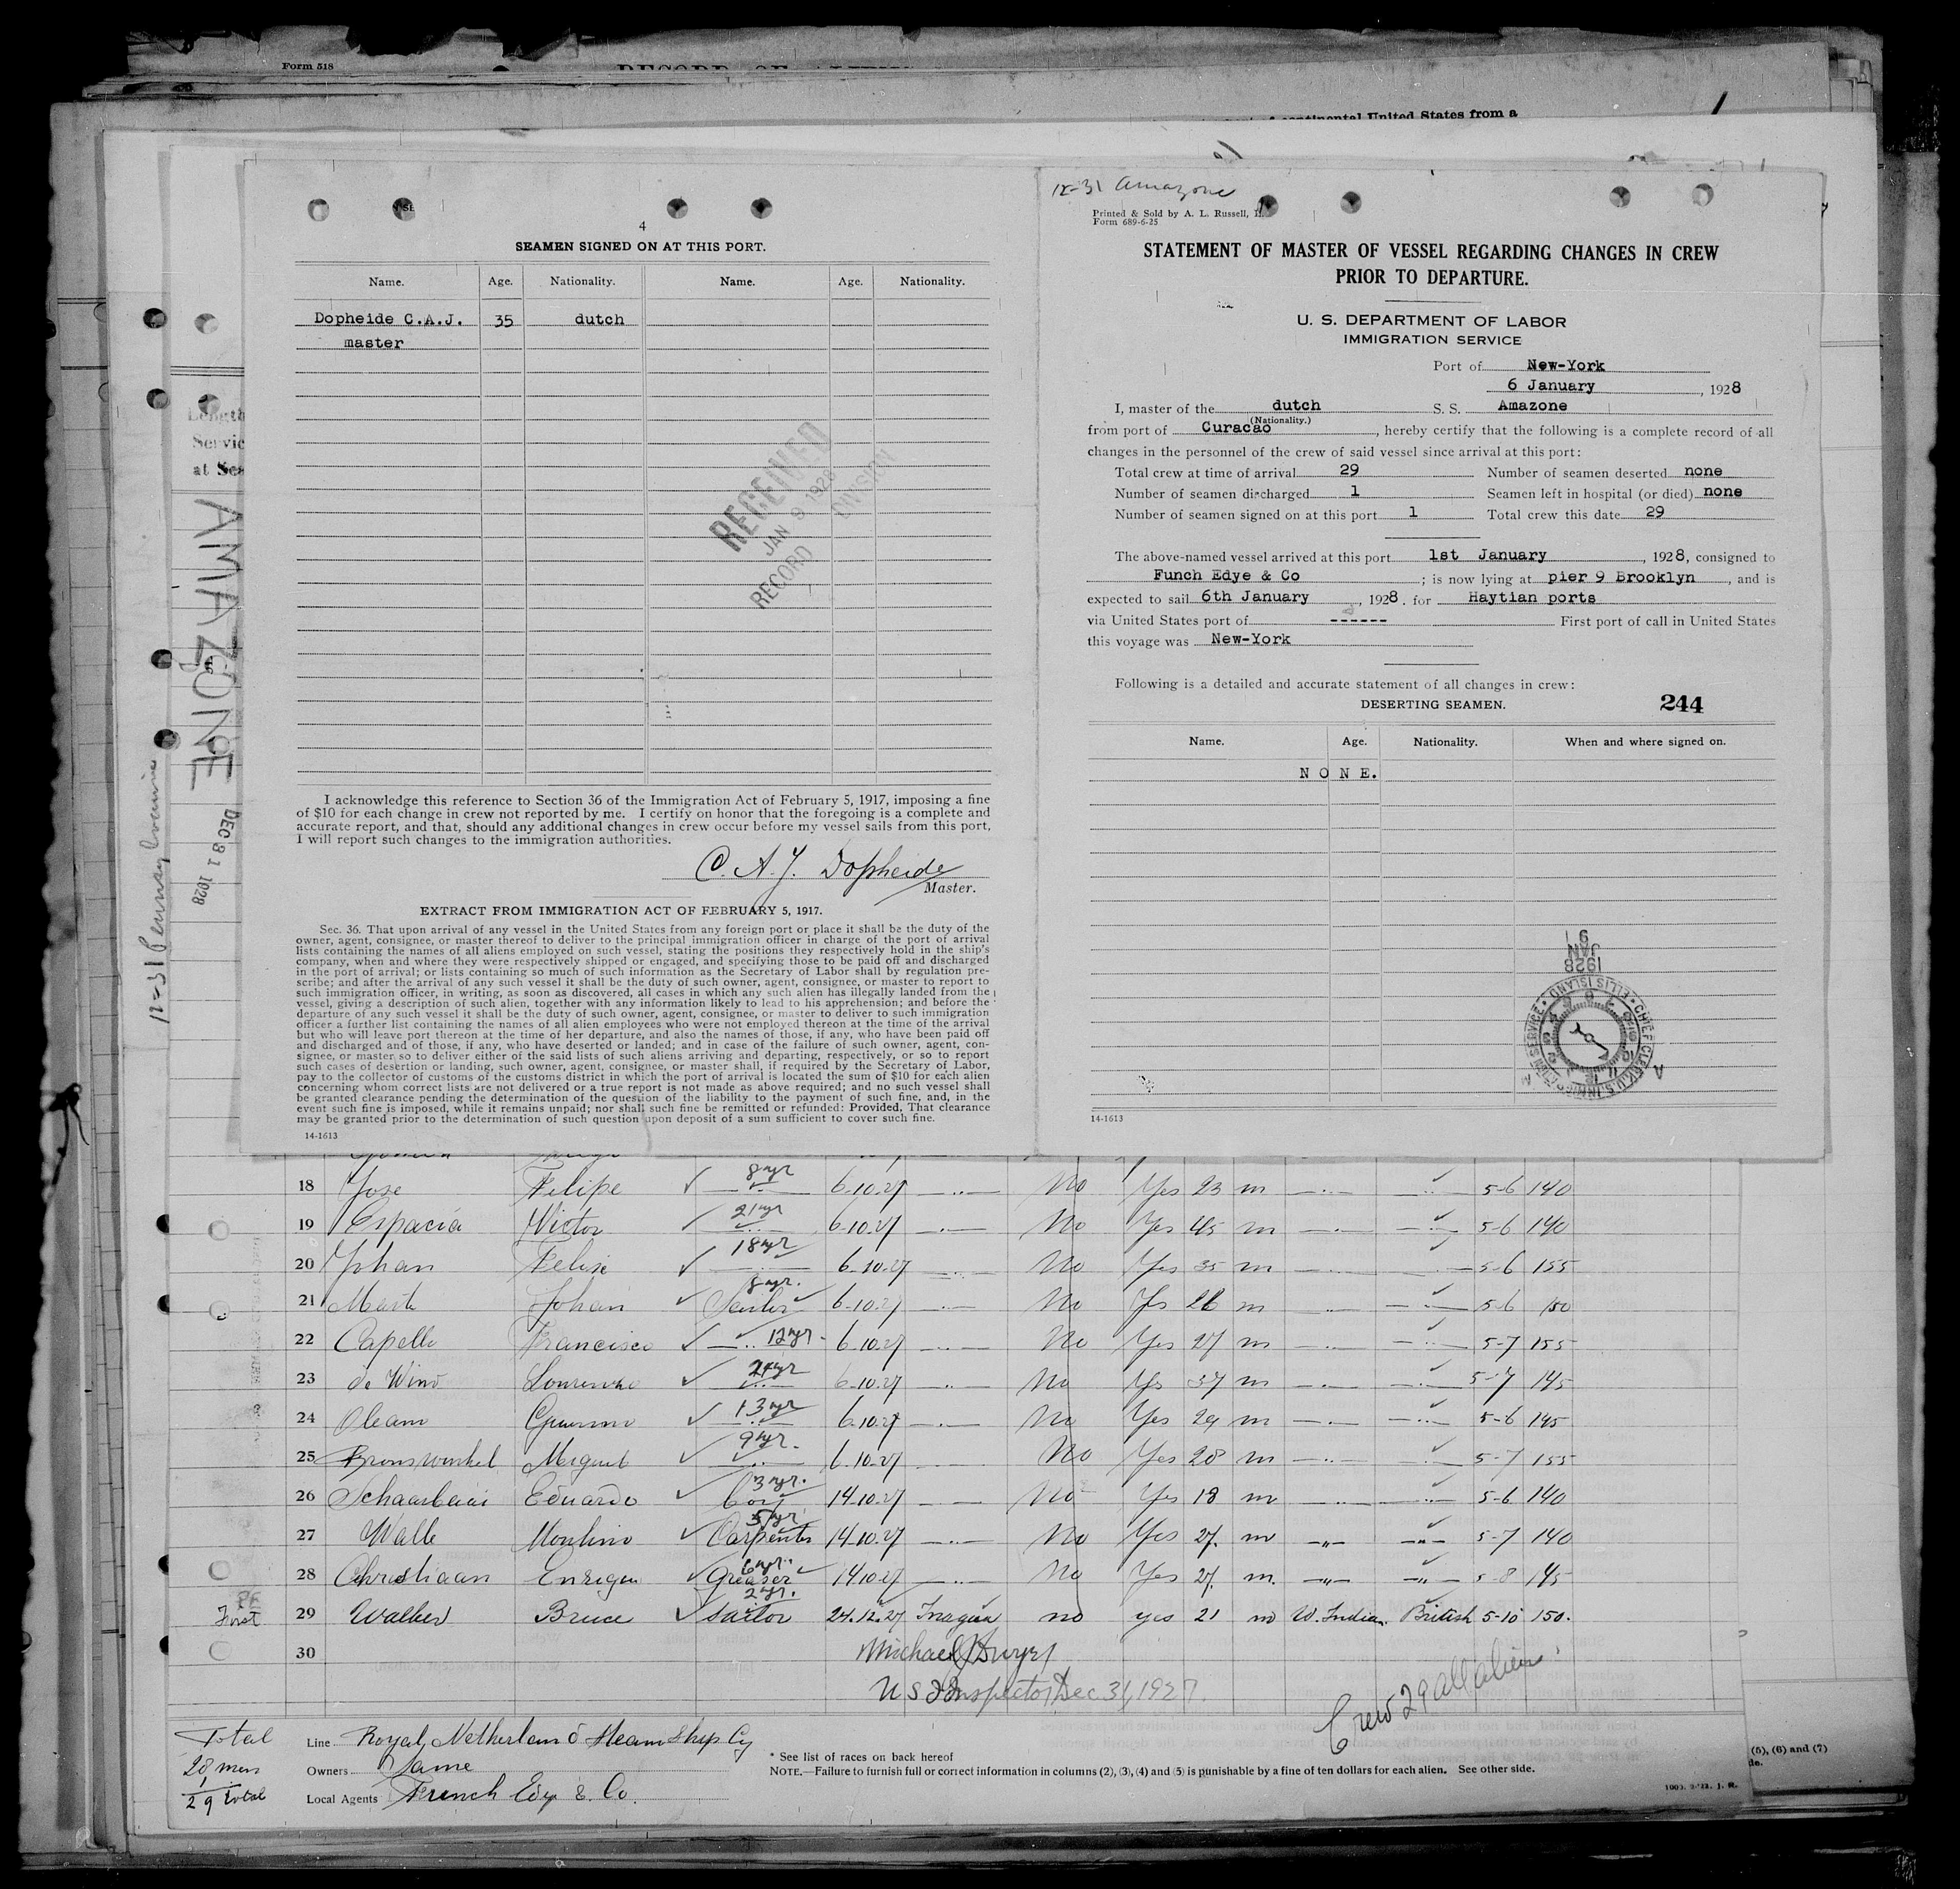 Form 518
continental United States from a
4
SEAMEN SIGNED ON AT THIS PORT.
Name. Age. Nationality. Name. Age. Nationality.
Dopheide C.A.J. 35 dutch
master
RECEIVED
JAN 9 1928
RECORD DIVISION
I acknowledge this reference to Section 36 of the Immigration Act of February 5, 1917, imposing a fine
of $10 for each change in crew not reported by me. I certify on honor that the foregoing is a complete and
accurate report, and that, should any additional changes in crew occur before my vessel sails from this port,
I will report such changes to the immigration authorities.
C. A. J. Dopheide
Master.
EXTRACT FROM IMMIGRATION ACT OF FEBRUARY 5, 1917.
Sec. 36. That upon arrival of any vessel in the United States from any foreign port or place it shall be the duty of the
owner, agent, consignee, or master thereof to deliver to the principal immigration officer in charge of the port of arrival
lists containing the names of all aliens employed on such vessel, stating the positions they respectively hold in the ship's
company, when and where they were respectively shipped or engaged, and specifying those to be paid off and discharged
in the port of arrival; or lists containing so much of such information as the Secretary of Labor shall by regulation pre-
scribe; and after the arrival of any such vessel it shall be the duty of such owner, agent, consignee, or master to report to
such immigration officer, in writing, as soon as discovered, all cases in which any such alien has illegally landed from the
vessel, giving a description of such alien, together with any information likely to lead to his apprehension; and before the
departure of any such vessel it shall be the duty of such owner, agent, consignee, or master to deliver to such immigration
officer a further list containing the names of all alien employees who were not employed thereon at the time of the arrival
but who will leave port thereon at the time of her departure, and also the names of those, if any, who have been paid off
and discharged and of those, if any, who have deserted or landed; and in case of the failure of such owner, agent, con-
signee, or master so to deliver either of the said lists of such aliens arriving and departing, respectively, or so to report
such cases of desertion or landing, such owner, agent, consignee, or master shall, if required by the Secretary of Labor,
pay to the collector of customs of the customs district in which the port of arrival is located the sum of $10 for each alien
concerning whom correct lists are not delivered or a true report is not made as above required; and no such vessel shall
be granted clearance pending the determination of the question of the liability to the payment of such fine, and, in the
event such fine is imposed, while it remains unpaid; nor shall such fine be remitted or refunded: Provided, That clearance
may be granted prior to the determination of such question upon deposit of a sum sufficient to cover such fine.
14-1613
12-31 Amazone
Printed & Sold by A. L. Russell,
Form 689-6-25
STATEMENT OF MASTER OF VESSEL REGARDING CHANGES IN CREW
PRIOR TO DEPARTURE.
U. S. DEPARTMENT OF LABOR
IMMIGRATION SERVICE
Port of New-York
6 January, 1928
I, master of the dutch S. S. Amazone
(Nationality.)
from port of Curacao, hereby certify that the following is a complete record of all
changes in the personnel of the crew of said vessel since arrival at this port:
Total crew at time of arrival 29 Number of seamen deserted none
Number of seamen discharged 1 Seamen left in hospital (or died) none
Number of seamen signed on at this port 1 Total crew this date 29
The above-named vessel arrived at this port 1st January, 1928, consigned to
Funch Edye & Co; is now lying at pier 9 Brooklyn, and is
expected to sail 6th January, 1928. for Haytian ports
via United States port of ------ First port of call in United States
this voyage was New-York
Following is a detailed and accurate statement of all changes in crew:
DESERTING SEAMEN. 244
Name. Age. Nationality. When and where signed on.
NONE.
JAN
1928
CHIEF CLERK, U.S. IMMIGRATION SERVICE
ELLIS ISLAND
14-1613
Length
Servic
at Sea
AMAZONE
DEC 31
12-31
18 Jose Felipe 8 yr 6-10-27 No Yes 23 m 5-6 140
19 Espacia Victor 21 yr 6-10-27 No Yes 45 m 5-6 140
20 Johan Felix 18 yr 6-10-27 No Yes 35 m 5-6 155
21 Johan 8 yr. 6-10-27 No Yes 26 m 5-6 150
22 Capello Francisco 12 yr 6-10-27 No Yes 27 m 5-7 155
23 de Wind 24 yr 6-10-27 No Yes 37 m 5-7 145
24 Oleana 13 yr 6-10-27 No Yes 29 m 5-6 145
25 Bronswinkel Miguel 9 yr. 6-10-27 No Yes 28 m 5-7 155
26 Eduardo 3 yr. boy 14-10-27 No Yes 18 m 5-6 140
27 Walle 5 yr Carpenter 14-10-27 No Yes 27. m 5-7 140
28 Christiaan Enrique 6 yr. Greaser 14-10-27 No Yes 27. m. 5-8 145
First 29 Walker Bruce 2 yr. Sailor 24.12.27 Inagua no yes 21 m W. Indian. British 5-10 150.
30
Michael J Dwyer
U S Inspector Dec 31, 1927.
Crew 29 all aliens
Total
28 men
1
29 total
Line Royal Netherland Steam Ship Cy
Owners Same
Local Agents Funch Edye & Co.
* See list of races on back hereof
NOTE.—Failure to furnish full or correct information in columns (2), (3), (4) and (5) is punishable by a fine of ten dollars for each alien. See other side.
(5), (6) and (7)